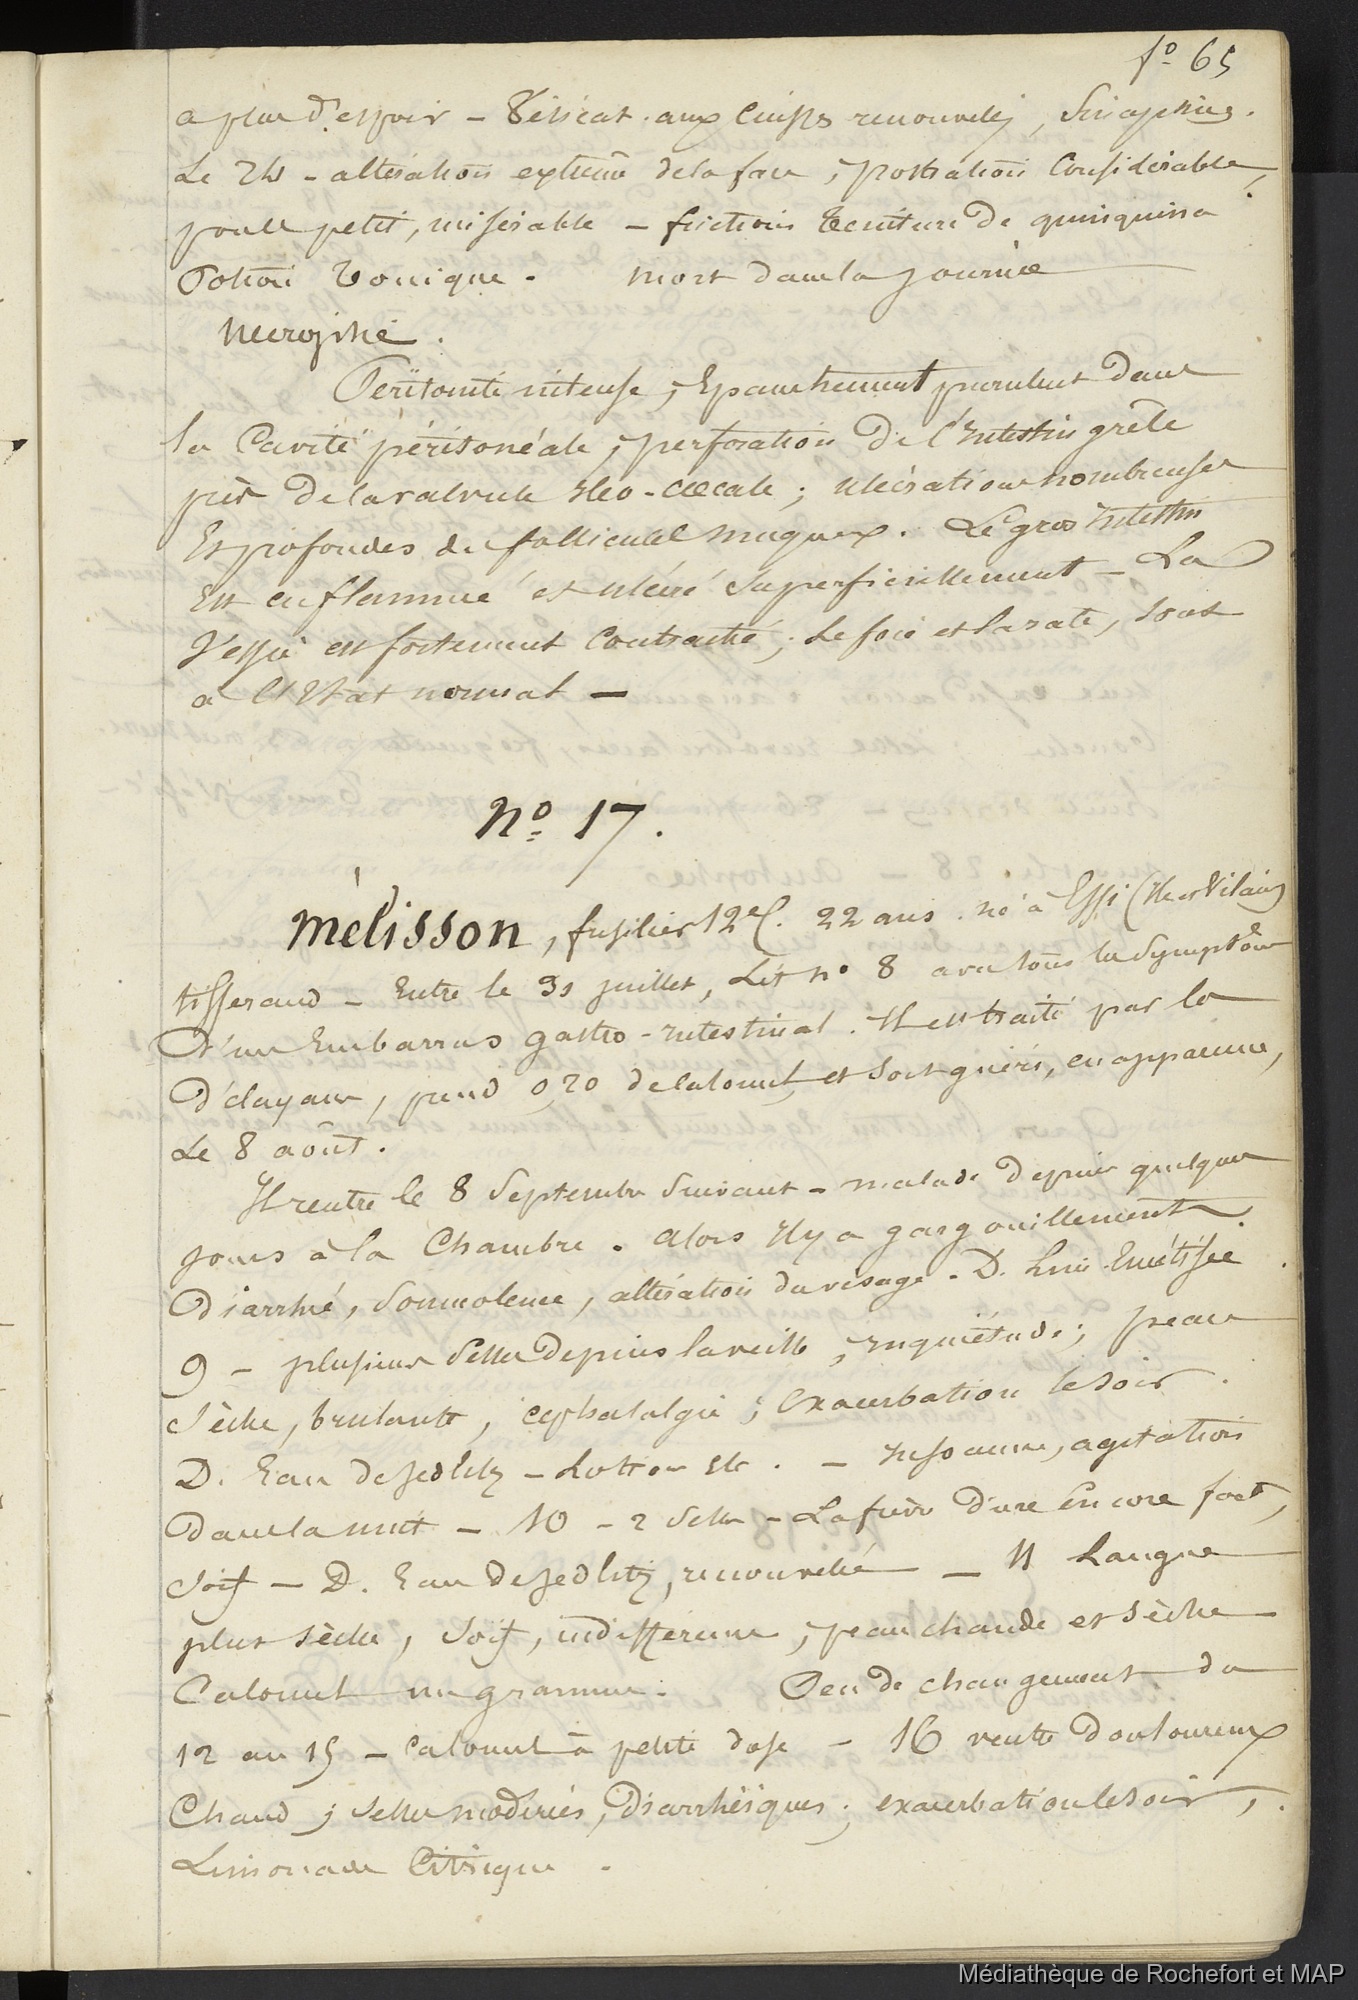 fº 65
a plus d'espoir – Vésicat. aux cuisses renouvelés, Sinapismes.
Le 24 – altération extrême de la face, prostration Considérable,
pouls petit, misérable – frictions teinture de quinquina
Potion Tonique. mort dans la journée
Necropsie.
Péritonite intense, Epanchement purulent dans
la Cavité péritonéale, perforation de l'Intestin grêle
près de la valvule Iléo-Cœcale; ulcérations nombreuses
Et profondes de follicules muqueux. Le gros intestin
Est enflammé et ulcéré superficiellement – La
Vessie est fortement Contractée; Le foie et la rate, sont
a l'Etat normal –
Nº 17.
Mélisson, fusilier 12e C. 22 ans. né à Essé (Ile et Vilaine)
tisserand – Entre le 31 juillet, Lit nº 8 avec tous les Symptômes
D'un Embarras gastro-intestinal. Il est traité par les
Délayans, prend 0,20 de calomel, et sort guéri, en apparence,
Le 8 août.
Il rentre le 8 Septembre Suivant – malade Depuis quelques
jours à la Chambre. Alors Il y a gargouillement.
Diarrhée, Somnolence, altération du visage. D. Limé Emétisée
9 – plusieurs Selles Depuis la veille, inquiétude; peau
sèche, brulante, céphalalgie; Exacerbation le soir.
D. Eau de Sedlitz – Lotion etc. – Insomnie, agitation
Dans la nuit – 10 – 2 selles – La fièvre dure Encore fort,
soif – D. Eau de Sedlitz, renouvelée – 11 Langue
plus sèche, soif, indifférence, peau chaude et sèche –
Calomel un gramme. Peu de changement du
12 au 15 – calomel à petite dose – 16 ventre Douloureux
Chaud; Selles modérées, Diarrhéiques; exacerbation le soir,
Limonade Citrique.
Médiathèque de Rochefort et MAP